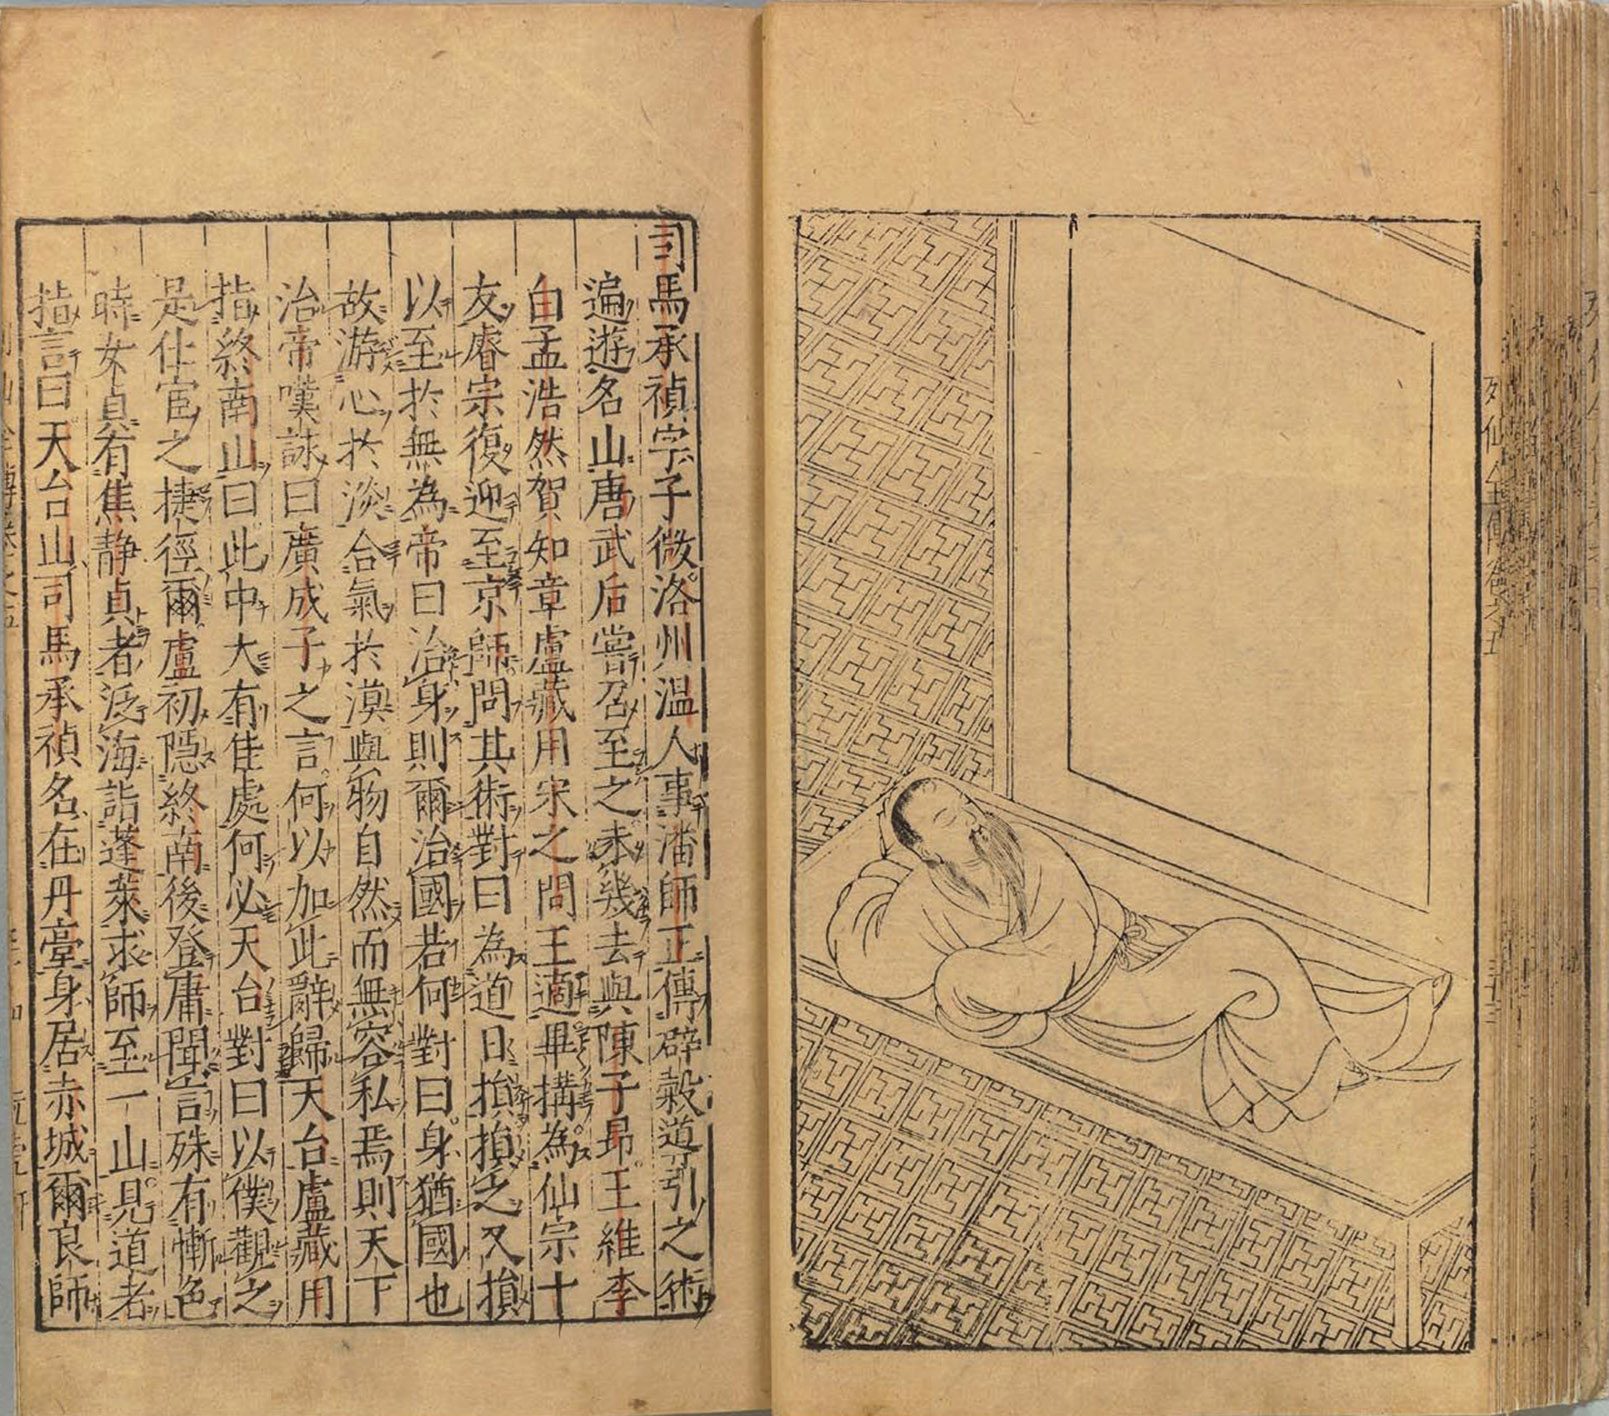 列仙全傳卷之五
三十三
司馬承禎字子微洛州温人事潘師正傳辟穀導引之術
遍遊名山唐武后嘗召至之未幾去與陳子昂王維李
白孟浩然賀知章盧藏用宋之問王適畢搆為仙宗十
友睿宗復迎至京師問其術對曰為道日損損之又損
以至於無為帝曰治身則爾治國若何對曰身猶國也
故游心於淡合氣於漠與物自然而無容私焉則天下
治帝嘆詠曰廣成子之言何以加此辭歸天台盧藏用
指終南山曰此中大有佳處何必天台對曰以僕觀之
是仕宦之捷徑爾盧初隱終南後登庸聞言殊有慚色
時女貞有焦静貞者泛海詣蓬萊求師至一山見道者
指言曰天台山司馬承禎名在丹臺身居赤城爾良師